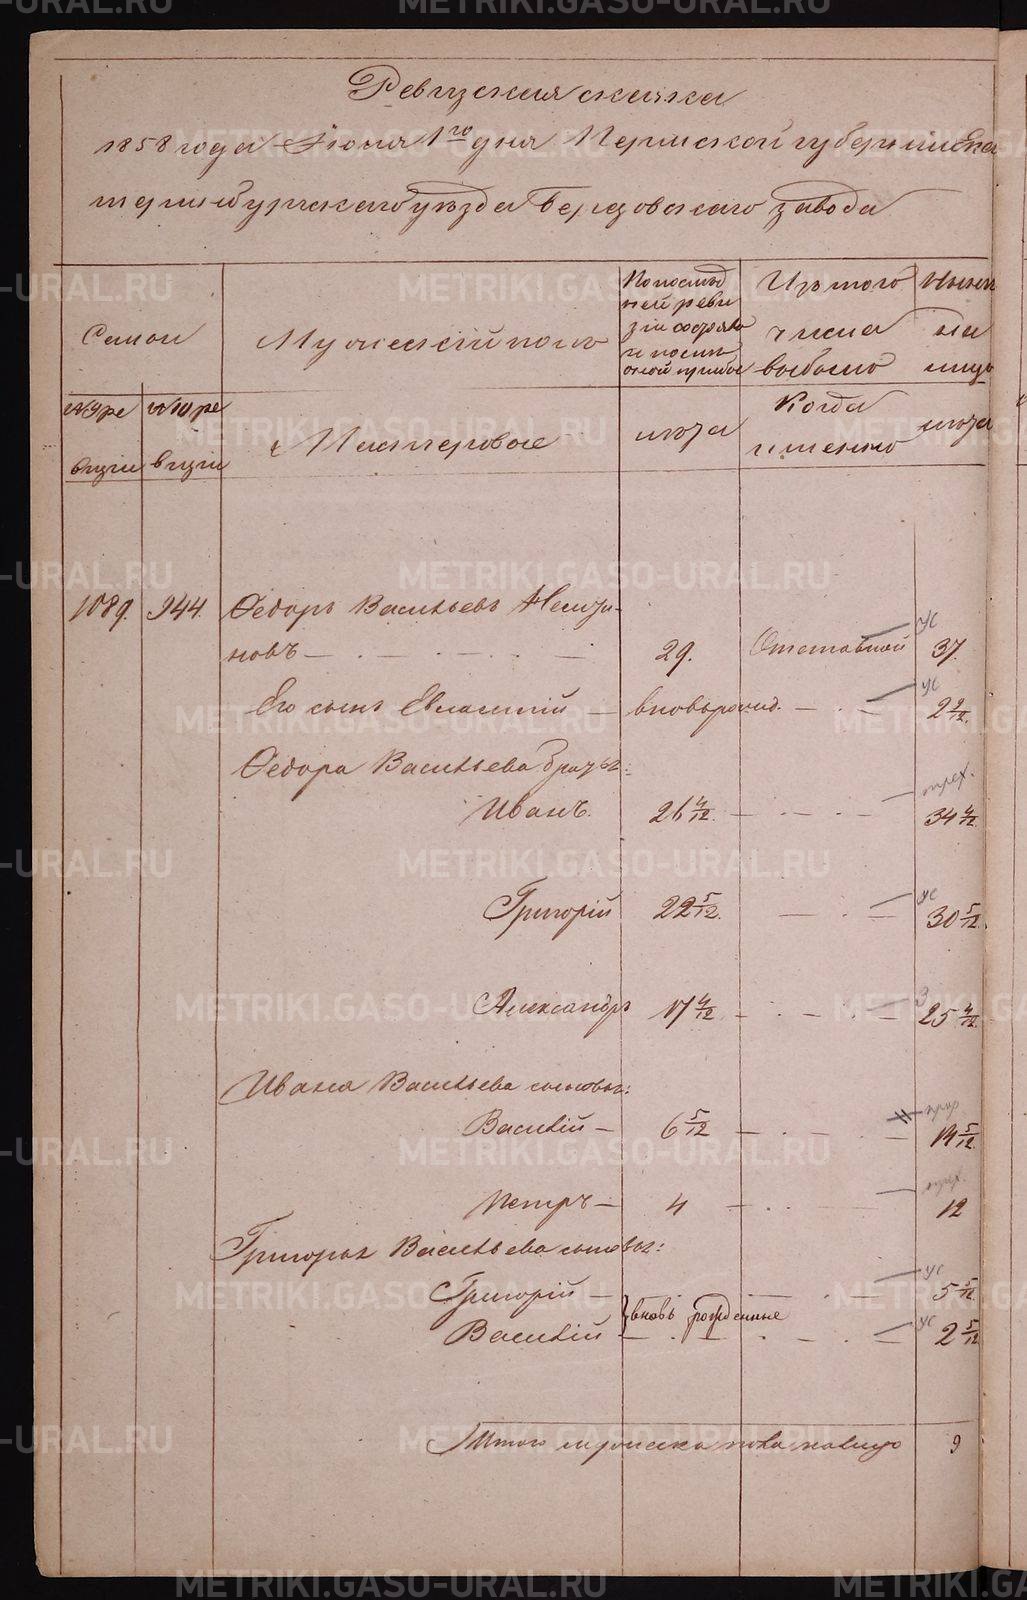 Ревизская сказка
1858 года Июня 1го дня Пермской губернии Ека
теринбургскаго уезда Березовскаго завода
Семьи
Мужескій полъ
По послед
ней реви
зіи состояло
и после
оной прибыло
Изъ того
числа
выбыло
Ныне
на
лицо
№ 9 ре
визіи
№ 10 ре
визіи
Мастеровые
лѣта
Когда
именно
лѣта
1089. 244. Ѳедоръ Васильевъ
новъ — 29. Отставной ус 37.
Его сынъ Евлампій — вновьрожд. — ус 2 2/12.
Ѳедора Васильева братья:
Иванъ. 26 4/12. — 34 4/12
Григорій 22 5/12. — ус 30 5/12.
Александръ 17 4/12 — 3 25 4/12.
Ивана Васильева сыновья:
Василій — 6 5/12 — 14 5/12
Петръ — 4 — 12
Григорья Васильева сыновья:
Григорій — ус 5 5/12
} вновь рожденные
Василій — ус 2 5/12
Итого мужеска пола налицо 9
METRIKI.GASO-URAL.RU